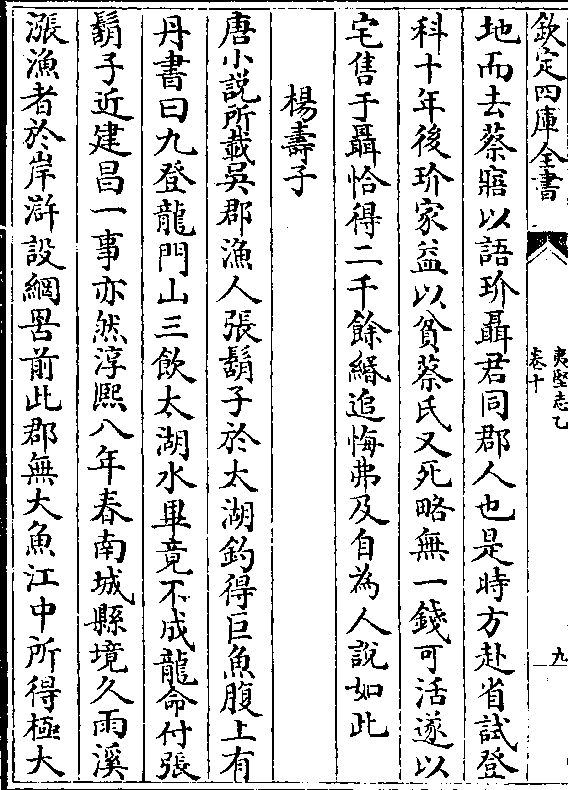 欽定四庫全書
夷堅志乙
卷十
九
地而去蔡寤以語玠聶君同郡人也是時方赴省試登
科十年後玠家益以貧蔡氏又死略無一錢可活遂以
宅售于聶恰得二千餘緡追悔弗及自為人說如此
楊壽子
唐小說所載吳郡漁人張鬍子於太湖釣得巨魚腹上有
丹書曰九登龍門山三飲太湖水畢竟不成龍命付張
鬍子近建昌一事亦然淳熙八年春南城縣境久雨溪
漲漁者於岸滸設網罟前此郡無大魚江中所得極大